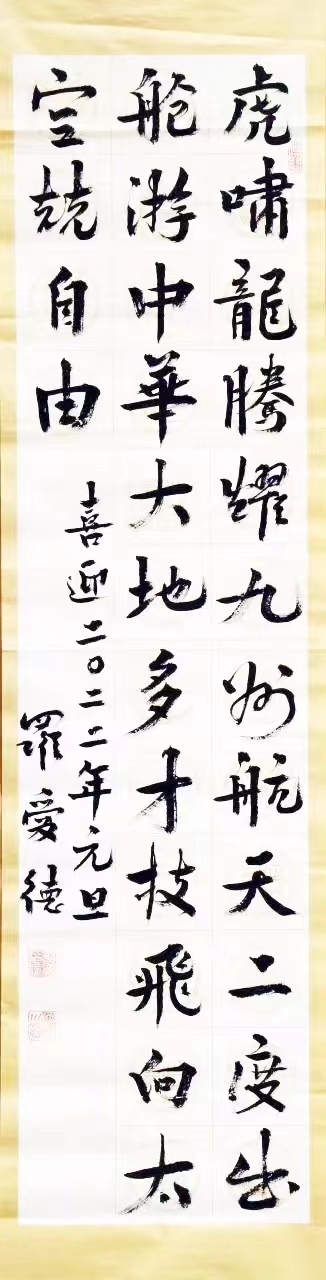 虎啸龍騰耀九州航天二度出
舱游中華大地多才技飛向太
空競自由
喜迎二〇二二年元旦
羅愛德